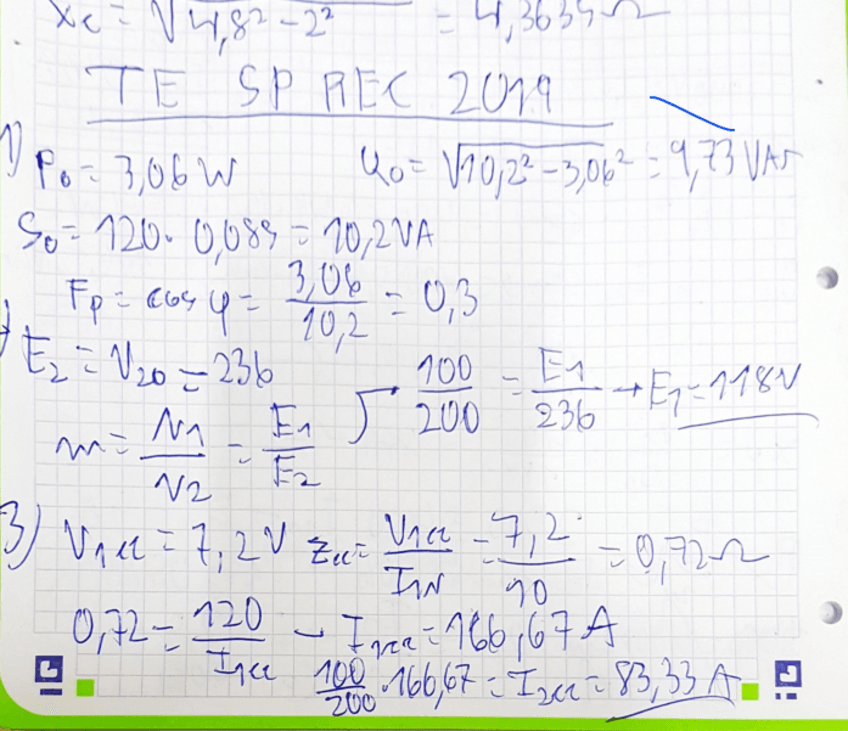 Xc = √4,8² - 2² = 4,3635 Ω
TE SP REC 2019
1) P₀ = 3,06 W Q₀ = √10,2² - 3,06² = 9,73 VAr
S₀ = 120 · 0,085 = 10,2 VA
Fp = cos φ = 3,06 / 10,2 = 0,3
E₂ = V₂₀ = 236
100 / 200 = E₁ / 236 → E₁ = 118 V
m = N₁ / N₂ = E₁ / E₂
3) V₁cc = 7,2 V Zcc = V₁cc / I₁N = 7,2 / 10 = 0,72 Ω
0,72 = 120 / I₁cc → I₁cc = 166,67 A
100 / 200 · 166,67 = I₂cc = 83,33 A